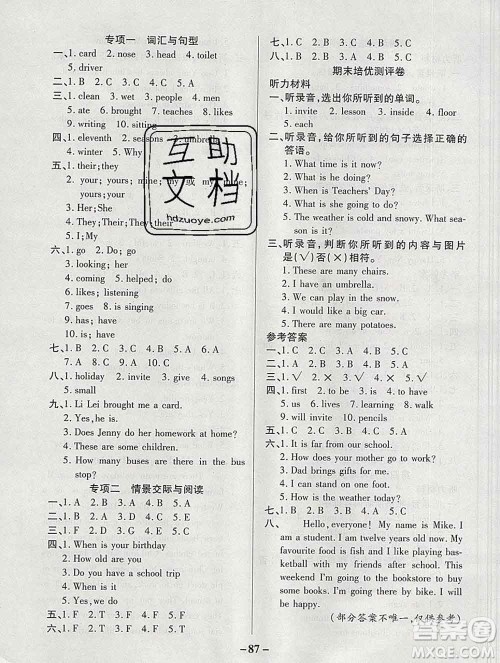 专项一　词汇与句型
一、1. card　2. nose　3. head　4. toilet
5. driver
二、1. C　2. B　3. B　4. A　5. B
三、1. clean　2. wet　3.
6. are　7. brought　teaches　8. likes
9. writing　10. sitting
四、1. eleventh　2. seasons　3. umbrel
4. winter　5. Why
五、1. their;they
2. your; yours; mine; my 或 my; mine;
yours; yours
3. Her;She
4. They;Their;They;
5. I;My
六、1. go　2. Do; go
3. looking; her
4. coming　5. helped; do
6. likes; listening
7. goes　8. is singing
9. has; have
10. is; have
七、1. B　2. C　3. A　4. B　5. A　6. B
7. A　8. A　9. C　10. A
八、1. holiday　2. winter　3. song　4. video
5. small
九、1. Li Lei brought me a card.
2. Yes,he is.
3. Does Jenny do her homework at home?
4. These are some children.
5. How many buses are there in the bus
stop?
专项二　情景交际与阅读
一、1. F　2. T　3. T　4. T　5. F
二、1. A　2. A　3. A　4. B　5. B
三、1. D　2. A　3. B　4. E　5. C
四、1. When is your birthday
2. Yes, he did
3. Do you have a school trip
4. What day is today
5. What did you do yesterday
五、1. F　2. F　3. T　4. F　5. T
六、1. B　2. A　3. C　4. B　5. A
七、1. C　2. B　3. A　4. B　5. A
八、1. C　2. B　3. A　4. C　5. A
期末培优测评卷
听力材料
一、听录音,选出你所听到的单词。
1. invite　2. lesson　3. inside　4. if
5. floor
二、听录音,给你所听到的句子选择正确的
答语。
1. What time is it now?
2. When is Teachers' Day?
3. What is she going to do?
4. What day is it today?
5. The weather is cold and snowy. What sea-
son is it?
三、听录音,判断你所听到的内容与图片
是(√)否(×)相符。
1. These are many chairs.
2. I have an umbrella.
3. We can play in the snow.
4. I would like a big car.
5. There are many potatoes.
参考答案
一、1. C　2. A　3. B　4. A　5. C
二、1. B　2. C　3. B　4. C　5. A
四、1. first　2. to be　3. is　4. at
5. us　6. lives　7. help　8. playing
9. will invite　10. pencils
五、1. C　2. A　3. D　4. E　5. B
六、1. It is far from our school.
2. How do you go home?
3. Dad brings gifts for me.
4. These are my friends.
5. How is the weather today?
七、1. B　2. C　3. C　4. B　5. A
八、　Hello, everyone! My name is Mike. I
am a student. I am twelve years old. My
favourite food is fish and I like playing bas-
ketball with my friends after school. This
weekend I'm going to the bookstore to buy
some books. I am very happy.
(部分答案不唯一,仅供参考)
互助文档
hdzuoye.com
- 87 -